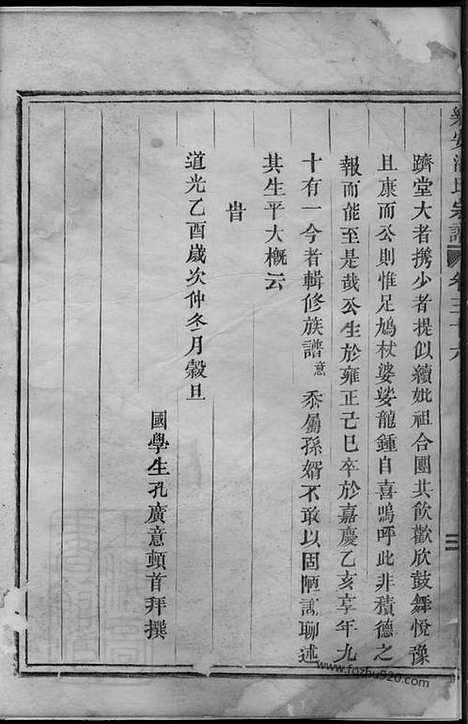 樂安氏宗譜 卷三十六
躋堂大者携少者提似續妣祖合團其飲歡欣鼓舞悅豫
且康而公則惟足鳩杖婆娑龍鍾自喜嗚呼此非積德之
報而能至是哉公生於雍正己巳卒於嘉慶乙亥享年九
十有一今者輯修族譜意忝屬孫婿不敢以固陋謝聊述
其生平大概云
旹
道光乙酉歲次仲冬月穀旦
國學生孔廣意頓首拜撰
www.fozhu920.com